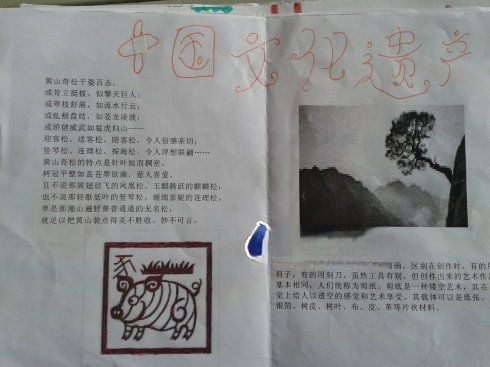 中国文化遗产
黄山奇松千姿百态。
或耸立挺拔，似擎天巨人；
或翠枝舒展，如流水行云；
或虬根盘结，如苍龙凌波；
或矫健威武如猛虎归山——
迎客松，送客松，陪客松，令人倍感亲切；
竖琴松、连理松、探海松、令人浮想联翩……
黄山奇松的特点是针叶短而稠密。
树冠平整如盖苍翠欲滴，惹人喜爱。
且不说那展翅欲飞的凤凰松，玉麒腾跃的麒麟松；
也不说那轻歌低吟的竖琴松，缠绵亲昵的连理松，
单是那漫山遍野普普通通的无名松，
就足以把黄山装点得美不胜收、妙不可言。
豕
画。区别在创作时，有的用
剪子，有的用刻刀，虽然工具有别，但创作出来的艺术作
基本相同，人们统称为剪纸。剪纸是一种镂空艺术，其在
觉上给人以透空的感觉和艺术享受。其载体可以是纸张、
银箔、树皮、树叶、布、皮、革等片状材料。